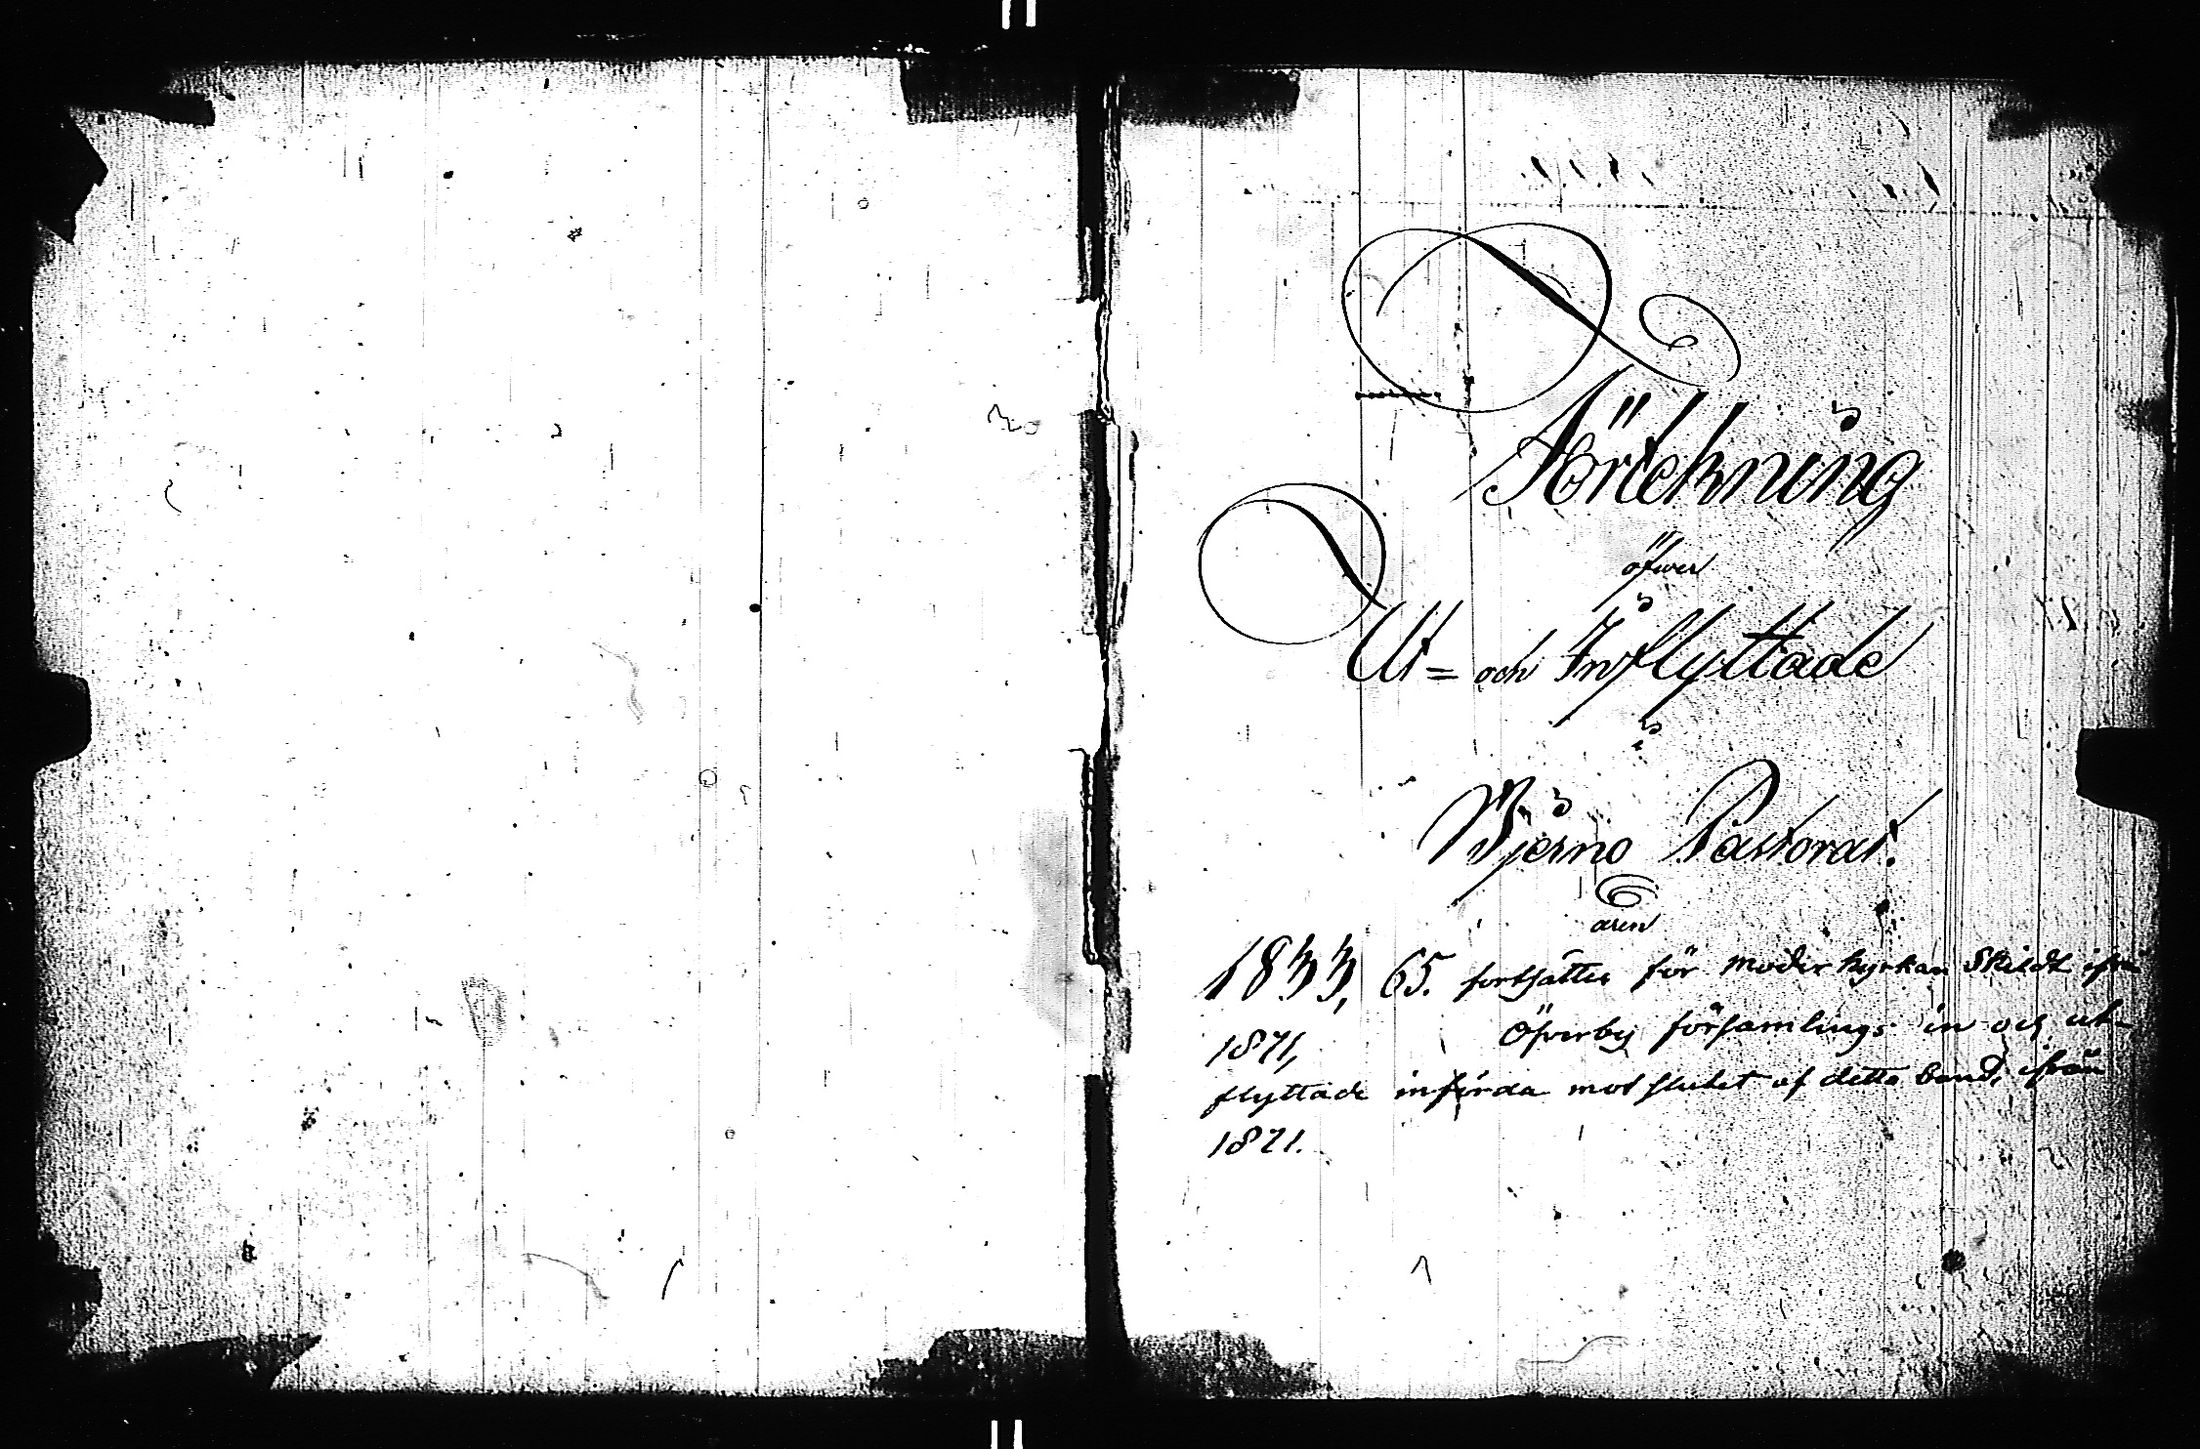 Förtekning
öfver
Ut= och Inflyttade
i
Bjerno Pastorat.
åren
1833, 65. fortsättes för moderkyrkan skildt ifrån
1871, Öfverby församlings in och ut-
flyttade införda mot slutet af detta band, ifrån
1871.